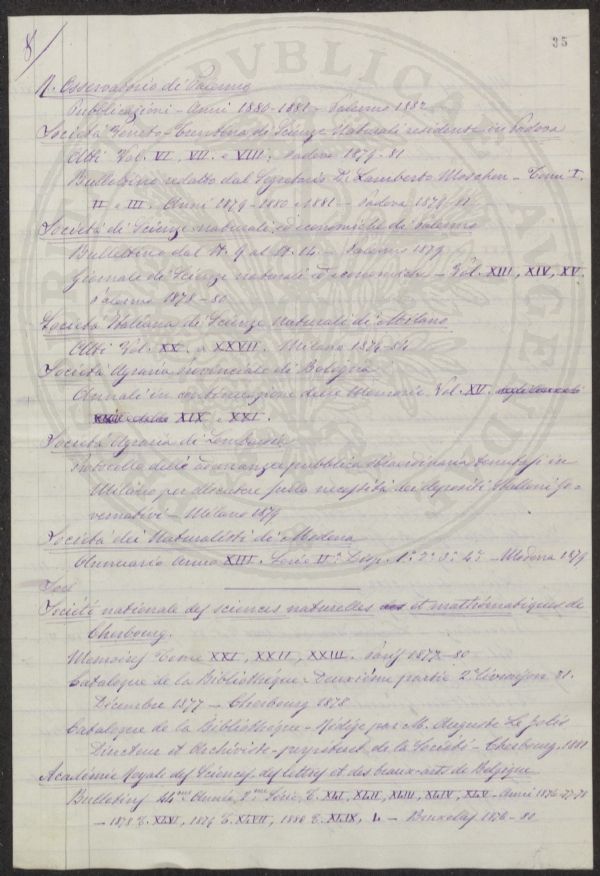 8/
35
R. Osservatorio di Palermo
Pubblicazioni - Anni 1880-1881 - Palermo 1882
Società Veneto-Trentina di Scienze Naturali residente in Padova
Atti Vol. VI, VII e VIII. Padova 1879-81
Bullettino redatto dal Segretario D. Lamberto Moschen - Tomi I,
II e III. Anni 1879-1880 e 1881 - Padova 1879-81
Società di Scienze naturali ed economiche di Palermo
Bullettino dal N. 9 al N. 14 - Palermo 1879
Giornale di Scienze naturali ed economiche - Vol. XIII, XIV, XV.
Palermo 1878-80
Società Italiana di Scienze Naturali di Milano
Atti Vol. XX. a XXVII. Milano
Società Agraria Provinciale di Bologna
Annali in continuazione delle Memorie Vol. XV.
XIX e XXI.
Società Agraria di Lombardia
Protocollo della adunanza pubblica straordinaria tenutasi in
Milano per discutere sulla necessità dei depositi Stalloni go-
vernativi - Milano 1879
Società dei Naturalisti di Modena
Annuario Anno XIII. Serie IIª Disp. 1ª 2ª 3ª 4ª - Modena 1879
Soci
Société nationale des sciences naturelles et mathématiques de
Cherbourg.
Memoires Tome XXI, XXII, XXIII. Paris 1877-80
Catalogue de la Bibliothèque - Deuxième partie 2e livraison 31.
Décembre 1877 - Cherbourg 1878
Catalogue de la Bibliothèque - Rédigé par M. Auguste Le Jolis
Directeur et Archiviste-perpétuel de la Société - Cherbourg 1881
Académie Royale des Sciences, des lettres et des beaux-arts de Belgique
Bulletins 44me Année, 2me Série, T. XLI, XLII, XLIII, XLIV, XLV - Anni 1876-77-78
- 1878 T. XLVI, 1879 T. XLVII, 1880 T. XLIX, L - Bruxelles 1876-80